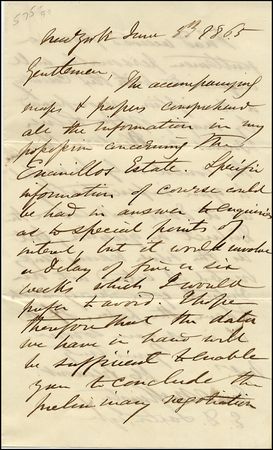 New York June 5th 1865
Gentlemen,
The accompanying
maps & papers comprehend
all the information in my
possession concerning the
Encinillos Estate. Specific
information of course could
be had in answer to enquiries
as to special points of
interest, but it would involve
a delay of five or six
weeks which I would
prefer to avoid. I hope
therefore that the data
we have in hand will
be sufficient to enable
you to conclude the
preliminary negotiation